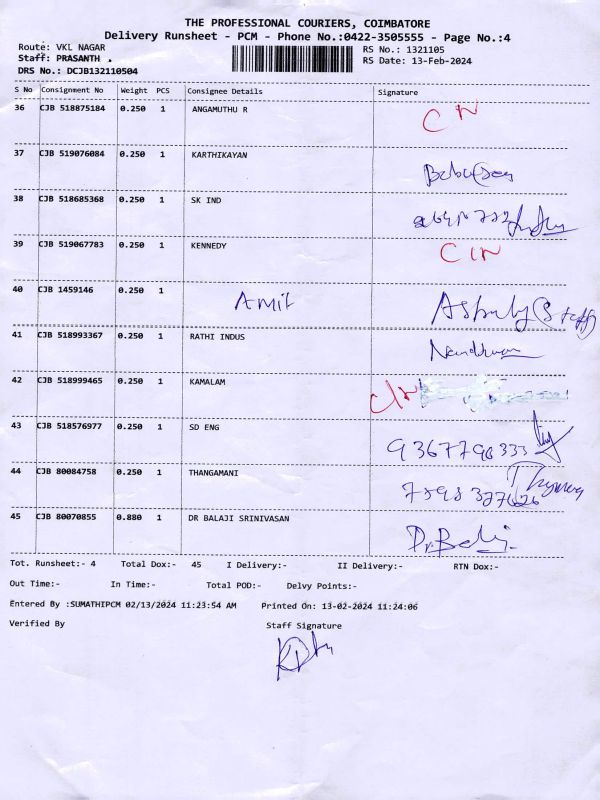 THE PROFESSIONAL COURIERS, COIMBATORE
Delivery Runsheet - PCM - Phone No.:0422-3505555 - Page No.:4
Route: VKL NAGAR RS No.: 1321105
Staff: PRASANTH . RS Date: 13-Feb-2024
DRS No.: DCJB132110504
S No Consignment No Weight PCS Consignee Details Signature
36 CJB 518875184 0.250 1 ANGAMUTHU R CN
37 CJB 519076084 0.250 1 KARTHIKAYAN
38 CJB 518685368 0.250 1 SK IND
39 CJB 519067783 0.250 1 KENNEDY CIN
40 CJB 1459146 0.250 1 Amit
41 CJB 518993367 0.250 1 RATHI INDUS
42 CJB 518999465 0.250 1 KAMALAM
43 CJB 518576977 0.250 1 SD ENG
44 CJB 80084758 0.250 1 THANGAMANI
45 CJB 80070855 0.880 1 DR BALAJI SRINIVASAN
Tot. Runsheet:- 4 Total Dox:- 45 I Delivery:- II Delivery:- RTN Dox:-
Out Time:- In Time:- Total POD:- Delvy Points:-
Entered By :SUMATHIPCM 02/13/2024 11:23:54 AM Printed On: 13-02-2024 11:24:06
Verified By Staff Signature